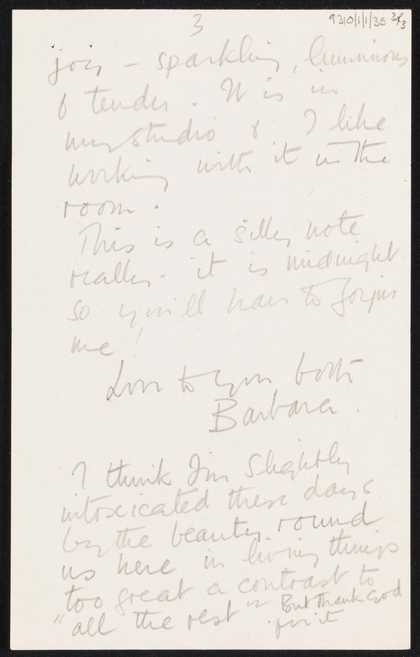 3
9310/1/1/35 3/3
joy – sparkling, luminous
& tender. It is in
my studio & I like
working with it in the
room.
This is a silly note
really – it is midnight
so you'll have to forgive
me!
Love to you both
Barbara.
I think I'm slightly
intoxicated these days
by the beauty round
us here in living things
too great a contrast to
"all the rest" – But thank God
for it